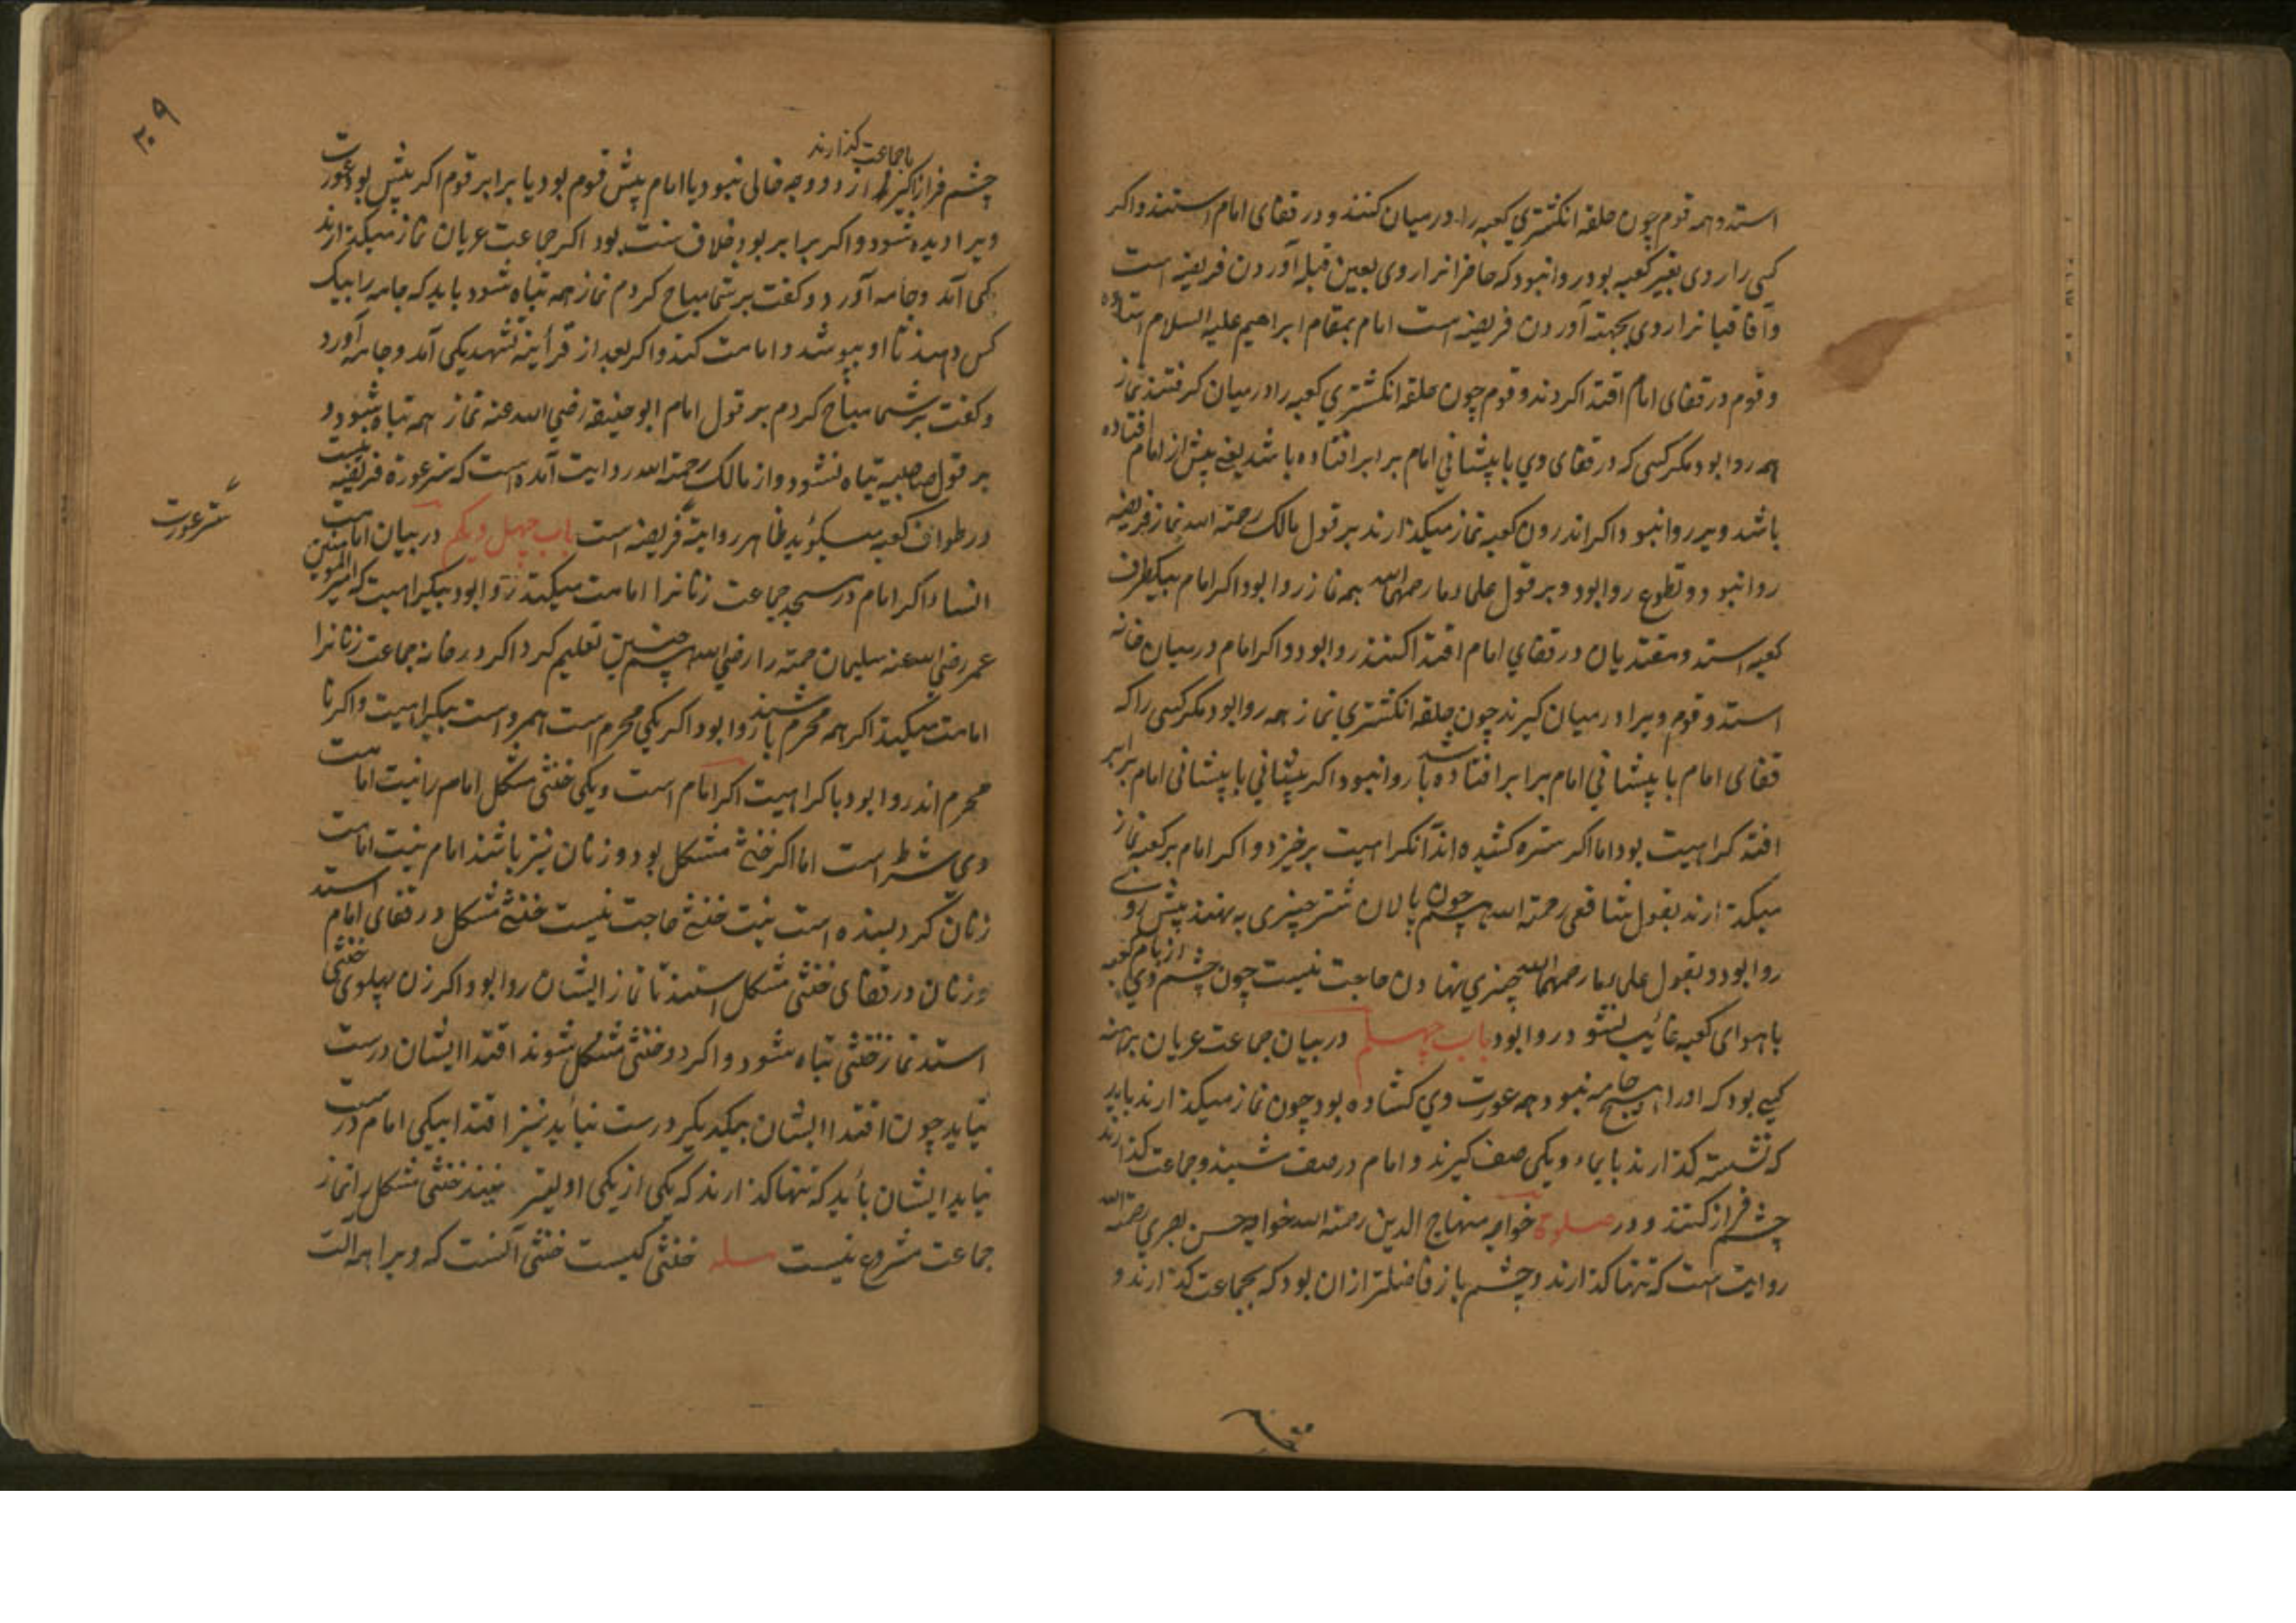 استد و همه قوم چون حلقه انکشتری کعبه را در میان کنند و در قفای امام استند و اکر
کسی را روی بغیر کعبه بود روا نبود که حاضرانرا روی بعین قبله آوردن فریضه است
و آفاقیانرا روی بجهة آوردن فریضه است امام بمقام ابراهیم علیه السلام استاده
و قوم در قفای امام اقتدا کردند و قوم چون حلقه انکشتری کعبه را در میان کرفتند نماز
همه روا بود مکر کسی که در قفای وی با پیشانی امام برابر افتاده باشد یعنی پیش از امام افتاده
باشد ویرا روا نبود و اکر اندرون کعبه نماز میکذارند بر قول مالک رحمة الله نماز فریضه
روا نبود و تطوع روا بود و بر قول علماء ما رحمهم الله همه نماز روا بود اکر امام بیکطرف
کعبه استد و مقتدیان در قفای امام اقتدا کنند روا بود و اکر امام در میان خانه
استد و قوم ویرا در میان کیرند چون حلقه انکشتری نماز همه روا بود مکر کسی را که
قفای امام با پیشانی امام برابر افتاده باشد روا نبود و اکر پیشانی با پیشانی امام برابر
افتد کراهیت بود اما اکر ستره کشیده اند آن کراهیت برخیزد و اکر امام بر کعبه نماز
میکذارند بقول شافعی رحمة الله هم چون پالان شتر چیزی بنهند پیش روی
روا بود و بقول علماء ما رحمهم الله چیزی نهادن حاجت نیست چون چشم وی از بام کعبه
با هوای کعبه غائب نشود روا بود باب چهلم در بیان جماعت عریان برهنه
کسی بود که او را هیچ جامه نبود همه عورت وی کشاده بود چون نماز میکذارند باید
که نشسته کذارند بایماء و یکی صف کیرند و امام در صف شیند و جماعت کذارند
چشم فراز کنند و در صلوة خواجه منهاج الدین رحمة الله خواجه حسن بصری رحمة الله
روایت است که تنها کذارند و چشم باز فاضلتر ازان بود که بجماعت کذارند و
۲۰۹
با جماعت کذارند
چشم فراز کیرند از دو وجه خالی نبود یا امام پیش قوم بود یا برابر قوم اکر پیش بود عورت
ویرا دیده شود و اکر برابر بود خلاف سنت بود اکر جماعت عریان نماز میکذارند
یکی آمد و جامه آورد و کفت بر شما مباح کردم نماز همه تباه شود باید که جامه را بیک
کس دهند تا او بپوشد و امامت کند و اکر بعد از قرأیة تشهد یکی آمد و جامه آورد
و کفت بر شما مباح کردم بر قول امام ابو حنیفه رضی الله عنه نماز همه تباه شود و
بر قول صاحبیه تباه نشود و از مالک رحمة الله روایت آمده است که ستر عورة فریضه نیست
در طواف کعبه میکوید ظاهر روایة فریضه است باب چهل و یکم در بیان امامت
ستر عورت
النساء اکر امام در مسجد جماعت زنانرا امامت میکند روا بود بیکراهیت که امیر المومنین
عمر رضی الله عنه سلیمان حمته را رضی الله هم چنین تعلیم کرد اکر در خانه جماعت زنانرا
امامت میکند اکر همه محرم باشند روا بود اکر یکی محرم است هم رواست بیکراهیت و اکر نا
محرم اند روا بود با کراهیت اکر امام است و یکی خنثی مشکل امام را نیت امامت
وی شرط است اما اکر خنثی مشکل بود و زنان نیز باشند امام نیت امامت
زنان کرد بسنده است نیت خنثی حاجت نیست خنثی مشکل در قفای امام استد
و زنان در قفای خنثی مشکل استند تا نماز ایشان روا بود اکر زن پهلوی خنثی
استد نماز خنثی تباه شود و اکر دو خنثی مشکل شوند اقتدا ایشان درست
نیاید چون اقتدا ایشان بیکدیکر درست نیاید نیز اقتدا بیکی امام درست
نیاید ایشان باید که تنها کذارند که یکی از یکی اولیتر نیند خنثی مشکل را نماز
جماعت مشروع نیست مسله خنثی کیست خنثی آنست که ویرا هم الت